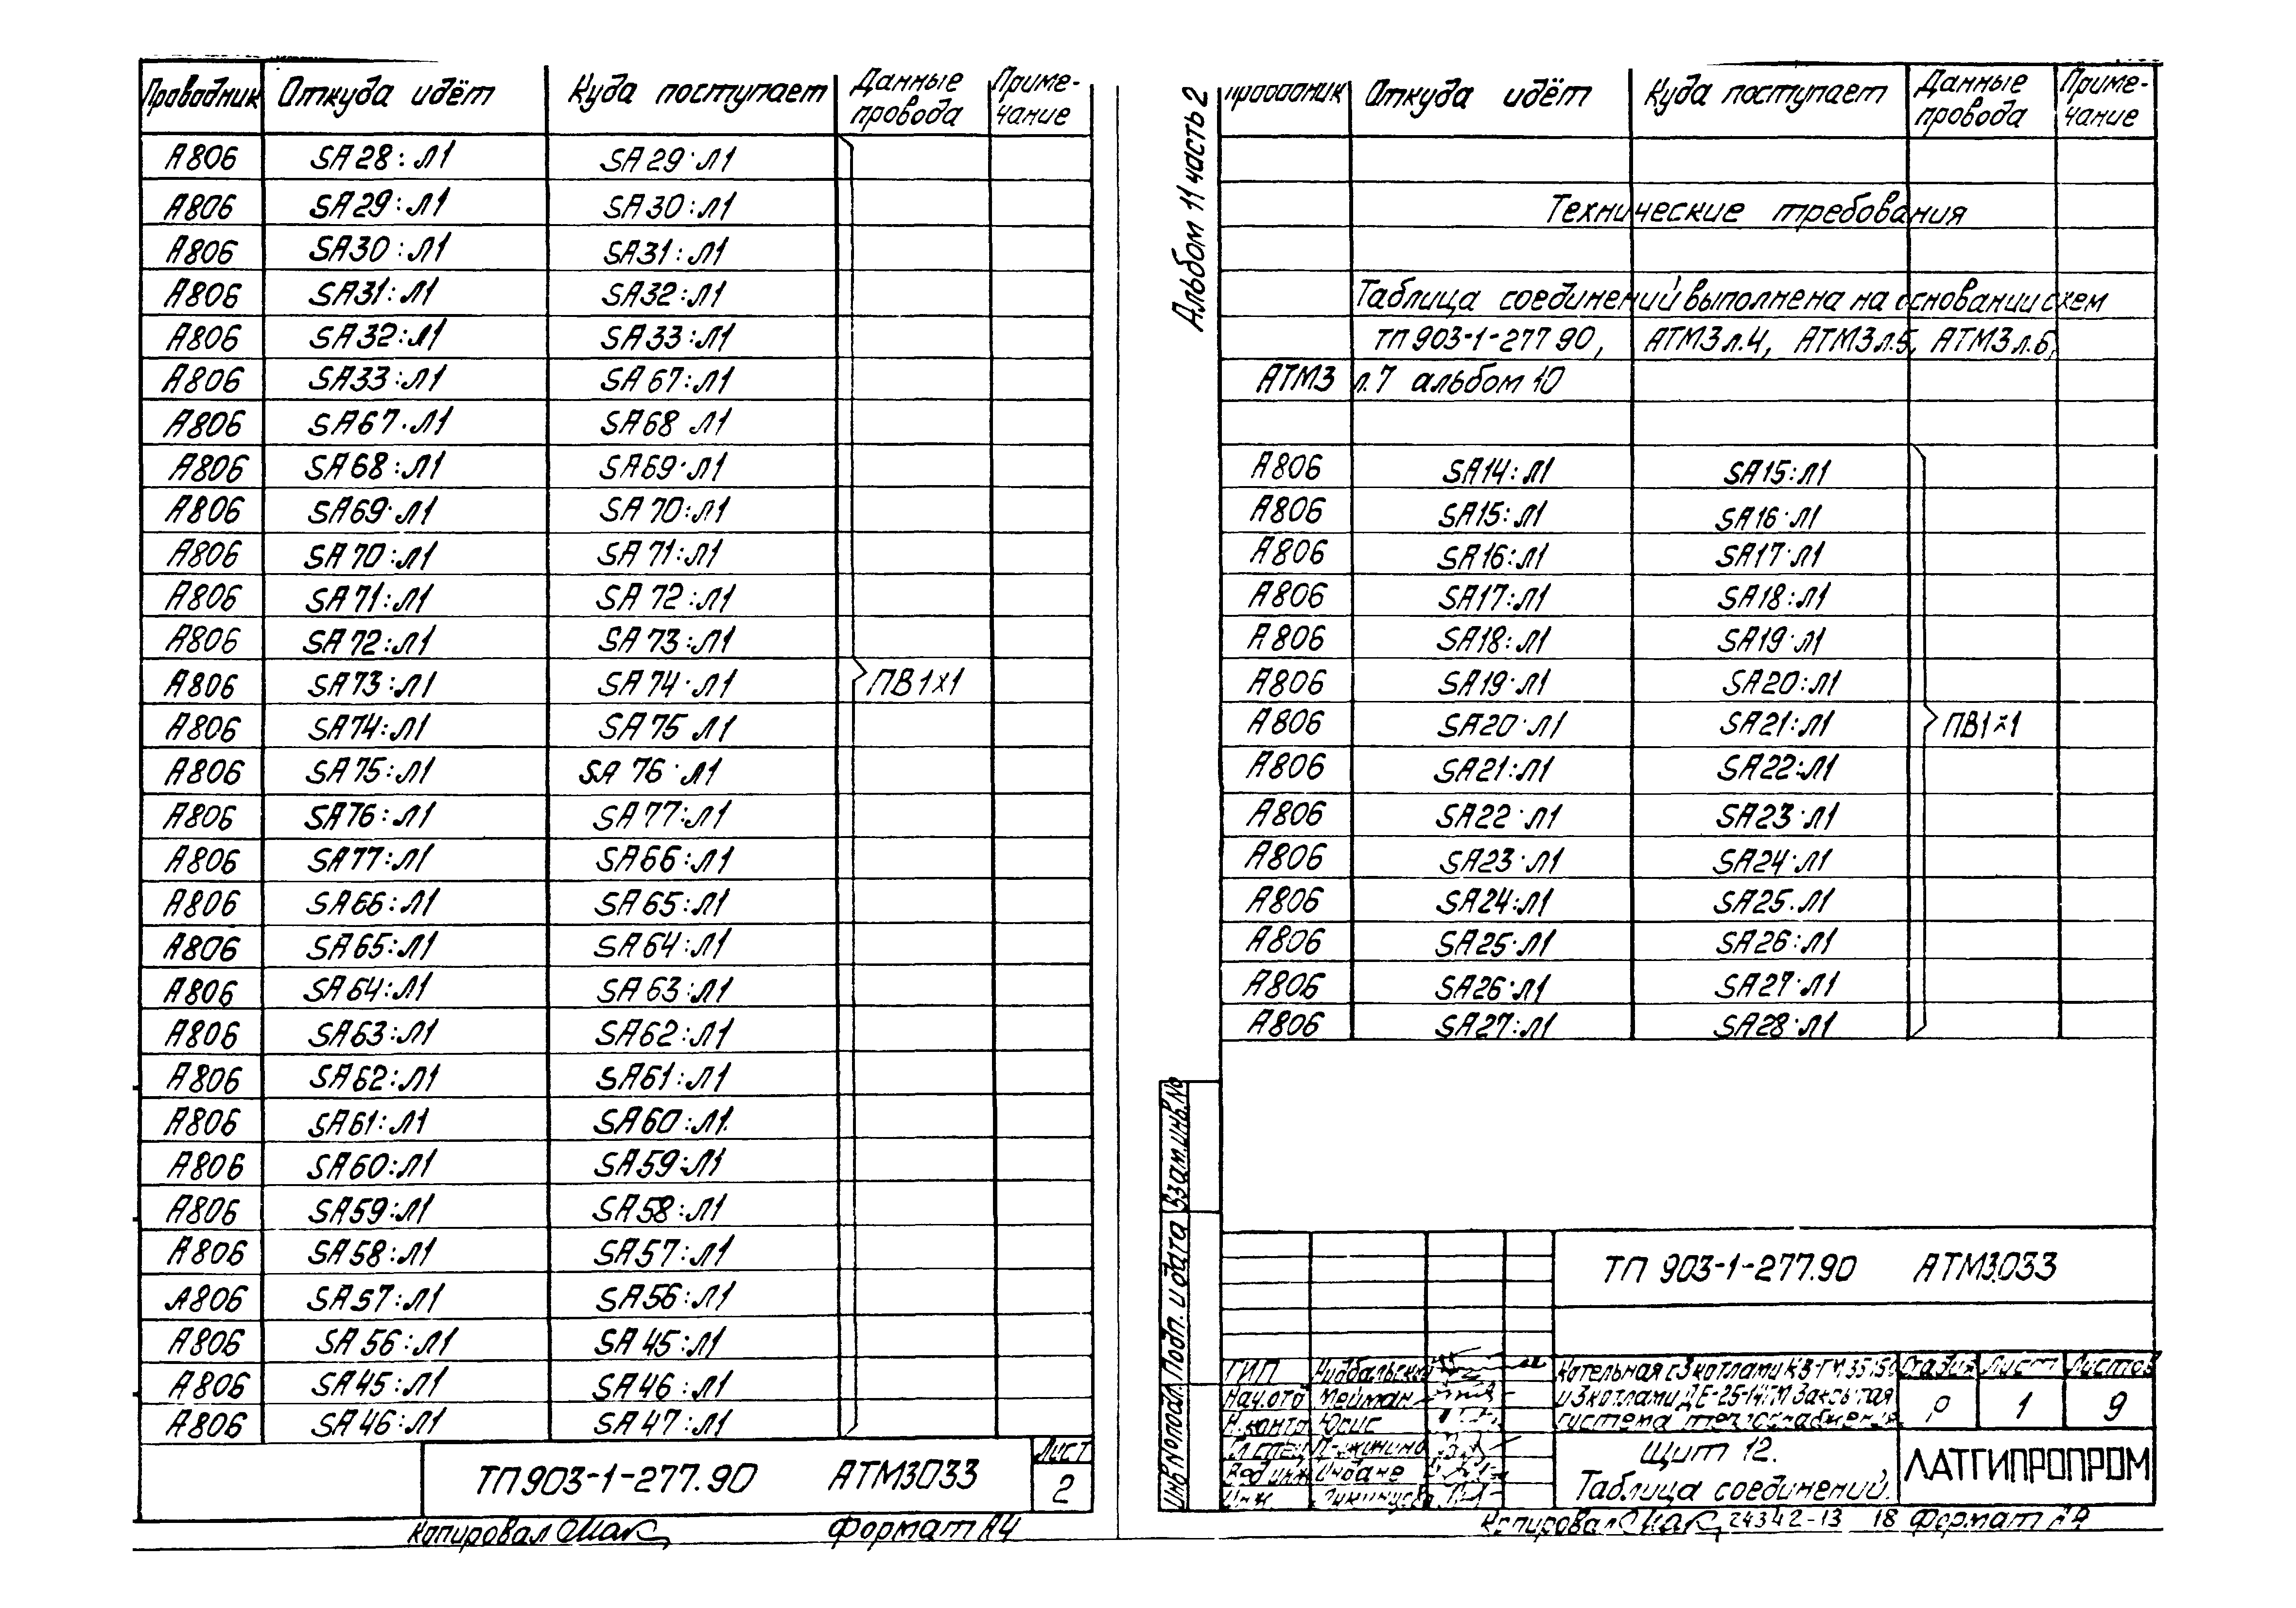 Проводник Откуда идёт Куда поступает Данные провода Примечание
А806 SA28:Л1 SA29·Л1
А806 SA29:Л1 SA30:Л1
А806 SA30:Л1 SA31:Л1
А806 SA31:Л1 SA32:Л1
А806 SA32:Л1 SA33:Л1
А806 SA33:Л1 SA67:Л1
А806 SA67·Л1 SA68 Л1
А806 SA68:Л1 SA69·Л1
А806 SA69·Л1 SA70:Л1
А806 SA70:Л1 SA71:Л1
А806 SA71:Л1 SA72:Л1
А806 SA72:Л1 SA73:Л1
А806 SA73:Л1 SA74·Л1 ПВ1х1
А806 SA74:Л1 SA75 Л1
А806 SA75:Л1 SA76·Л1
А806 SA76:Л1 SA77:Л1
А806 SA77:Л1 SA66:Л1
А806 SA66:Л1 SA65:Л1
А806 SA65:Л1 SA64:Л1
А806 SA64:Л1 SA63:Л1
А806 SA63:Л1 SA62:Л1
А806 SA62:Л1 SA61:Л1
А806 SA61:Л1 SA60:Л1.
А806 SA60:Л1 SA59:Л1
А806 SA59:Л1 SA58:Л1
А806 SA58:Л1 SA57:Л1
А806 SA57:Л1 SA56:Л1
А806 SA56:Л1 SA45:Л1
А806 SA45:Л1 SA46:Л1
А806 SA46:Л1 SA47:Л1
ТП 903-1-277.90 АТМ3033 Лист
2
Копировал Формат А4
Альбом 11 часть 2
Проводник Откуда идёт Куда поступает Данные провода Примечание
Технические требования
Таблица соединений выполнена на основании схем
ТП 903-1-277 90, АТМ3 л.4, АТМ3 л.5, АТМ3 л.6,
АТМ3 л.7 альбом 10
А806 SA14:Л1 SA15:Л1
А806 SA15:Л1 SA16·Л1
А806 SA16:Л1 SA17·Л1
А806 SA17:Л1 SA18:Л1
А806 SA18:Л1 SA19·Л1
А806 SA19·Л1 SA20:Л1
А806 SA20·Л1 SA21:Л1 ПВ1х1
А806 SA21:Л1 SA22:Л1
А806 SA22·Л1 SA23·Л1
А806 SA23·Л1 SA24·Л1
А806 SA24:Л1 SA25.Л1
А806 SA25·Л1 SA26:Л1
А806 SA26·Л1 SA27·Л1
А806 SA27:Л1 SA28·Л1
Инв№подл. Подп. и дата Взам.инв.№
ТП 903-1-277.90 АТМ3.033
ГИП
Нач.отд Мейман
Н.контр Юрис
Гл.спец
Вед инж Индане
Инж
Котельная с 3 котлами КВ-ГМ 35-150
и 3 котлами ДЕ-25-14ГМ Закрытая
система теплоснабжения
Стадия Лист Листов
Р 1 9
Щит 12.
Таблица соединений.
ЛАТГИПРОПРОМ
Копировал 24342-13 18 Формат А4